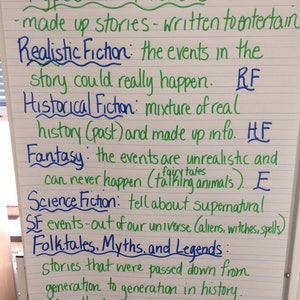 -made up stories - written to entertain
Realistic Fiction: the events in the
story could really happen. RF
Historical Fiction: mixture of real
history (past) and made up info. HF
Fantasy: the events are unrealistic and
fairy tales
can never happen (talking animals). F
Science Fiction: tell about supernatural
SF events - out of our universe (aliens, witches, spells)
Folktales, Myths, and Legends:
stories that were passed down from
generation to generation in history.